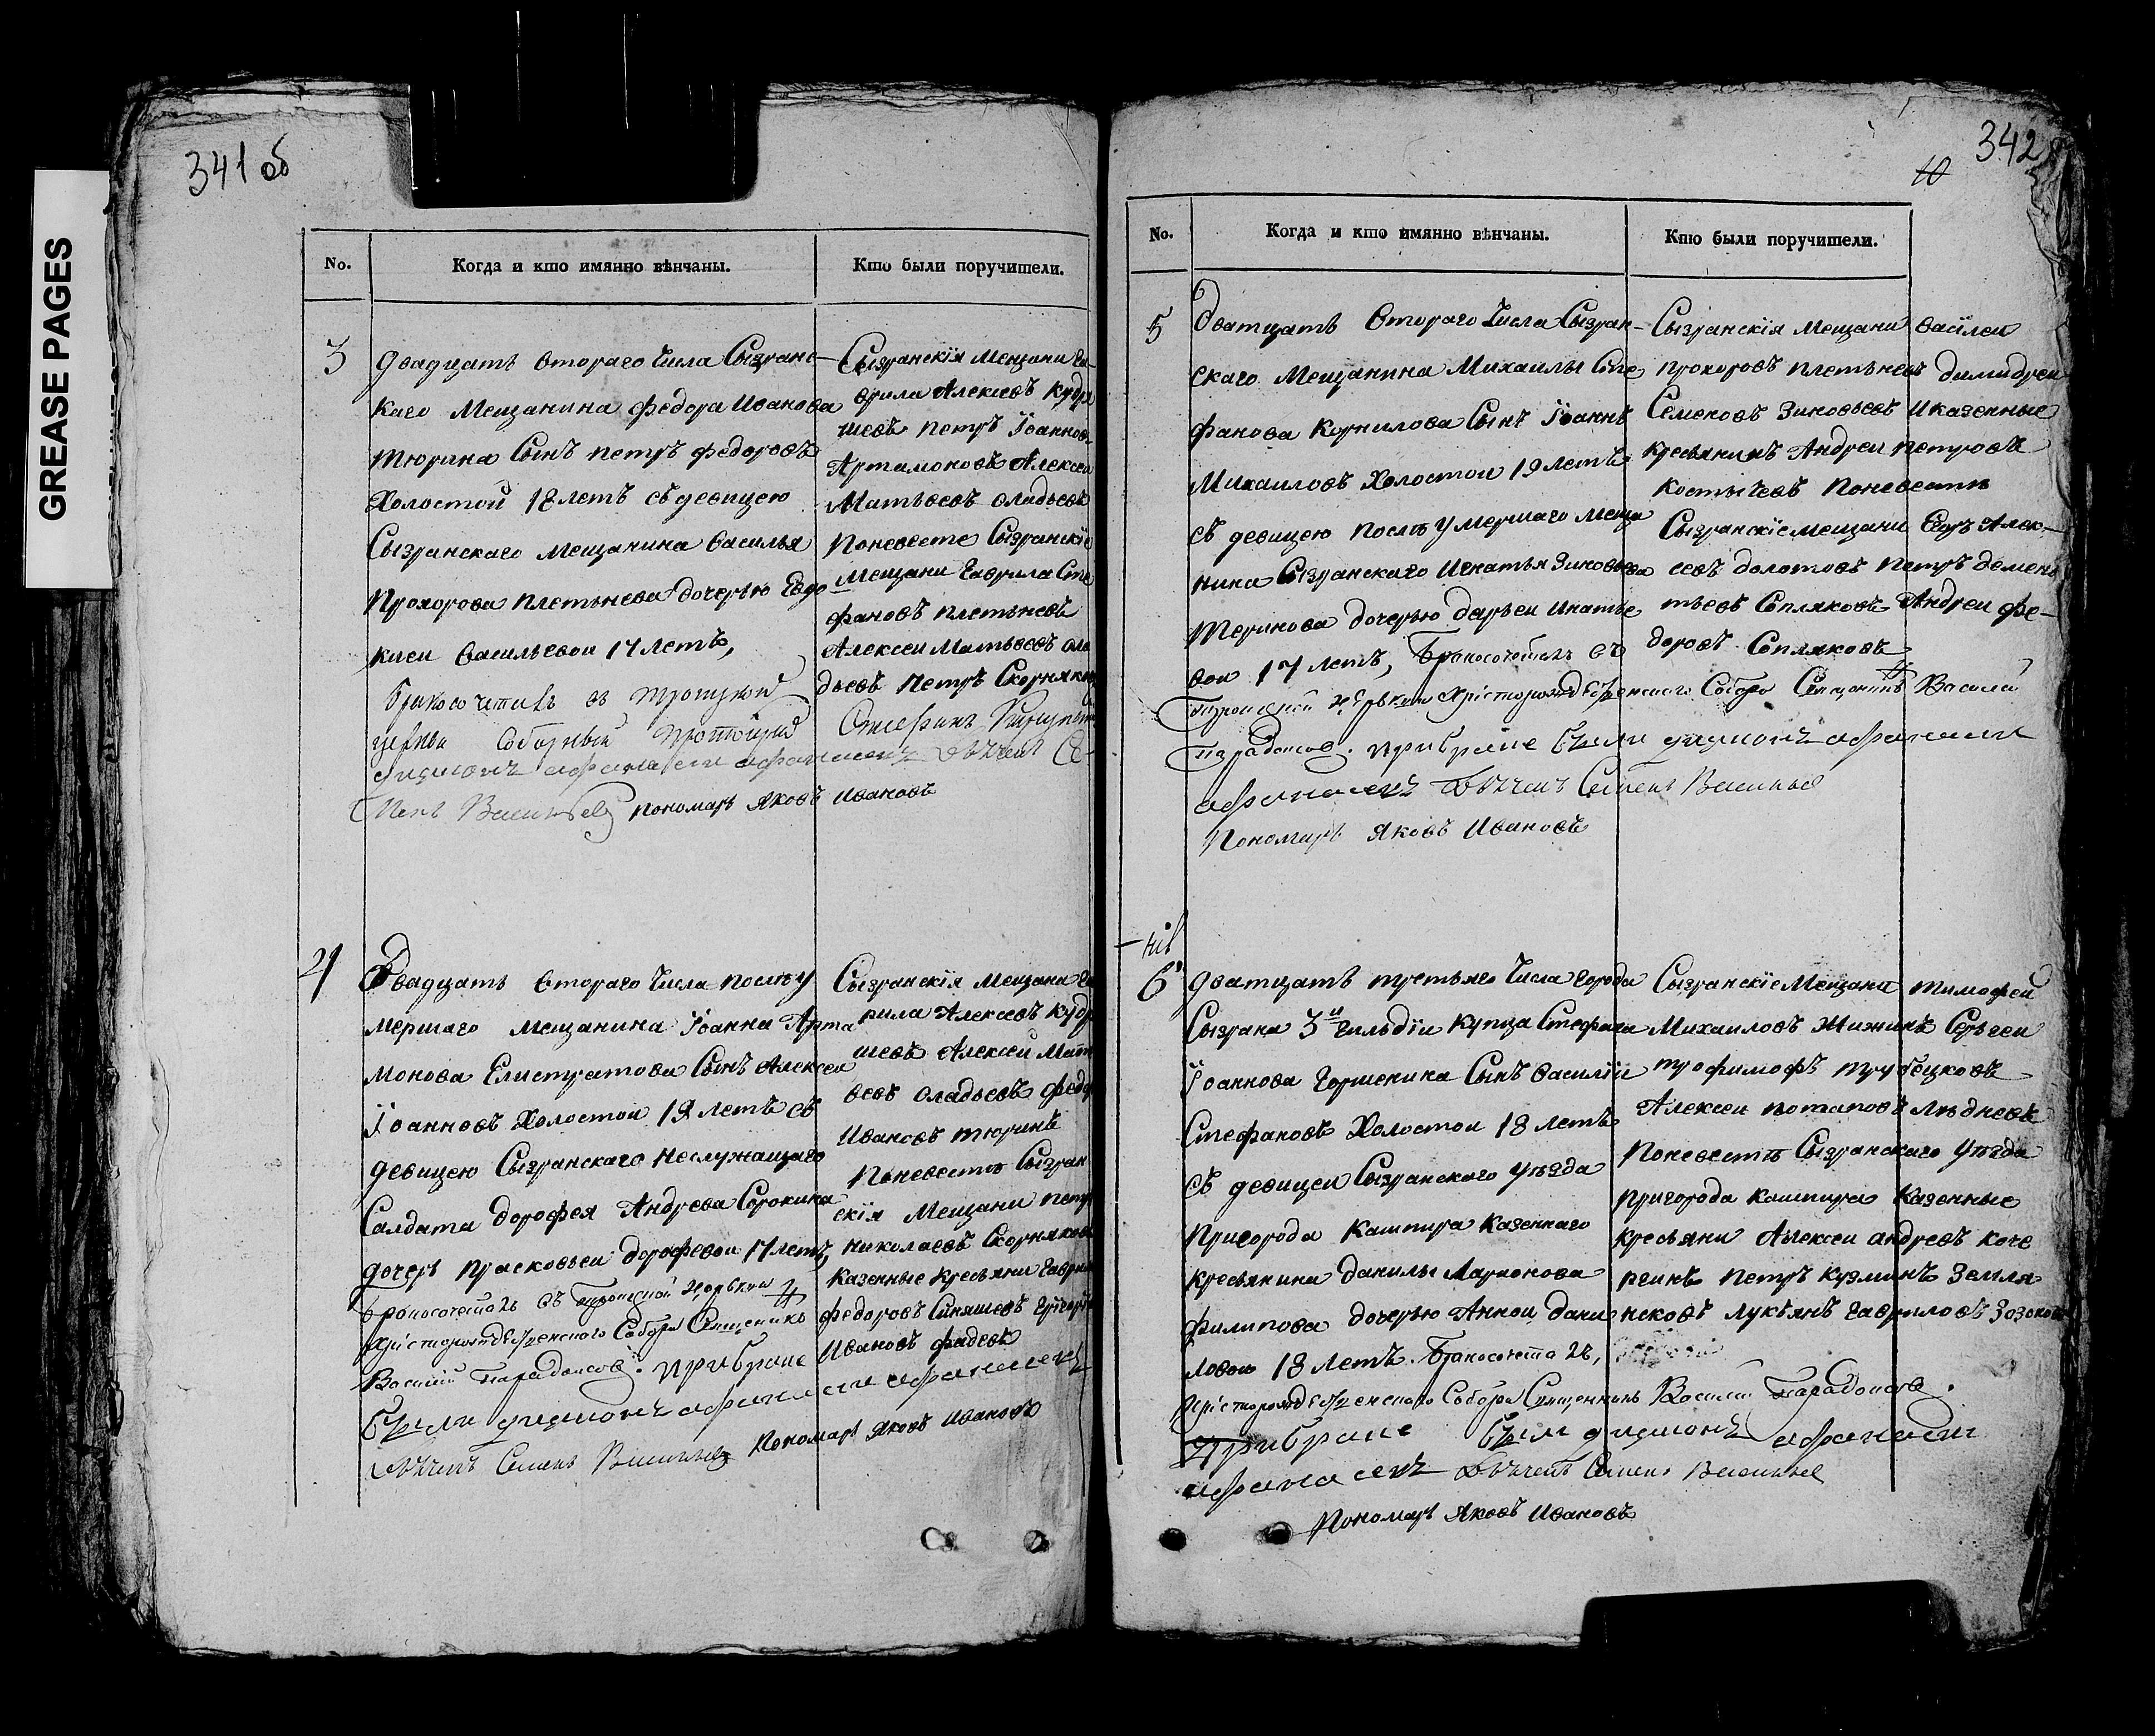 GREASE PAGES
341 об
No.
Когда и кто имянно вѣнчаны.
Кто были поручители.
3
Двадцать втораго Числа Сызранс-
каго Мещанина Федора Иванова
Тюрина Сынъ Петръ Федоровъ
Холостой 18 летъ съ девицею
Сызранскаго Мещанина Василья
Прохорова Плетьнева дочерью Евдо
киеи Васильевои 17 летъ,
Бракосочеталъ въ Троицкой
церкви Соборный Протоіерей
дияконъ Афанасеи Афанасевъ
Василевъ Пономарь Яковъ Ивановъ
Сызранскія Мещани Га-
врила Алексевъ Кудря
шевъ Петръ Іоаннов
Артамоновъ Алексеи
Матвеевъ Оладьевъ
Поневесте Сызранскіе
Мещани Гаврила Сте
фановъ Плетьневъ
Алексеи Матвеевъ Ола
дьевъ Петръ Скорняков
4
Двадцать втораго Числа послѣ у
мершаго Мещанина Іоанна Арта
монова Елистратова Сынъ Алексеи
Іоанновъ Холостои 19 летъ съ
девицею Сызранскаго Неслужащаго
Салдата Дорофея Андреева Сорокина
дочерь Прасковьеи Дорофеевои 17 летъ,
бракосочеталъ въ Троицкой Церькви
Христорождественского Собора Священникъ
Василий Парадоксовъ. при браке
были дияконъ Афанасеи Афанасевъ
Дьячекъ Семенъ Васильевъ Пономарь Яковъ Ивановъ
Сызранскія Мещани Га
рила Алексевъ Кудр
шевъ Алексеи Мат
веевъ Оладьевъ Федо
Ивановъ Тюринъ
Поневестѣ Сызран
скія Мещани Петр
Николаевъ Скорняков
Казенные Кресьяни Гаврил
Федоровъ Синяшевъ Григори
Ивановъ Фадеевъ
342
10
No.
Когда и кто имянно вѣнчаны.
Кто были поручители.
5
Дватцать Втораго Числа Сызран-
скаго Мещанина Михаилы Сте
фанова Корнилова Сынъ Іоаннъ
Михаиловъ Холостои 19 летъ
съ девицею послѣ умершаго Меща
нина Сызранскаго Игнатья Зиновьева
Теринова дочерью Дарьеи Инатье
вои 17 летъ, Бракосочеталъ въ
Троицкой церькви Христорождественского Собора Священникъ Василий
Парадоксов. при браке были дияконъ Афанасеи
Афанасевъ Дьячекъ Семенъ Васильев
Пономарь Яковъ Ивановъ
Сызранскія Мещани Василеи
Прохоровъ Плетьневъ Димидреи
Семеновъ Зиновьевъ И казенные
кресьянинъ Андреи Петровъ
Костычевъ Поневести
Сызранские мещани Егоръ Алек-
севъ Долотовъ Петръ Демень
тьевъ Сопляковъ Андреи Фе-
доровъ Сопляковъ
6
Дватцать третьяго Числа города
Сызрана 3й Гильдіи Купца Стефана
Іоаннова Горшенина Сынъ Василіи
Стефановъ Холостои 18 летъ
съ девицеи Сызранскаго Уѣзда
Пригорода Кашпира Казеннаго
кресьянина Данилы Ларионова
Филипова дочерью Анною Дани
ловою 18 летъ. Бракосочеталъ,
Христорождественского Собора Священникъ Василии Парадоксовъ.
При браке были дияконъ Афанасеи
Афанасевъ Дьячекъ Семенъ Васильев
Пономарь Яковъ Ивановъ
Сызранскіе Мещани Тимофеи
Михаиловъ Жижинъ Серьгеи
Трофимофъ Трубецковъ
Алексеи Потаповъ Лѣдневъ
Поневестѣ Сызранскаго Уѣзда
пригорода Кашпира Казенные
кресьяни Алексеи Андреевъ Коче
ргинъ Петръ Кузминъ Земля
нсковъ Лукьянъ Гавриловъ